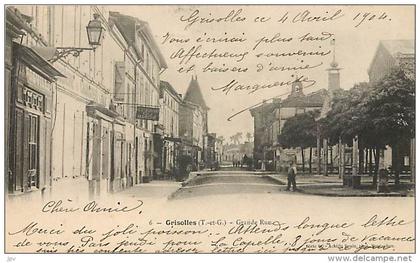 Grisolles ce 4 Avril 1904.
Vous écrirai plus tard.
Affectueux souvenir
et baisers d'amie
Marguerite
6 - Grisolles (T.-et-G.) - Grande Rue
Chère Amie,
Merci du joli poisson. Attends longue lettre
de vous. Pars jeudi pour La Capelle, 8 jours de vacances